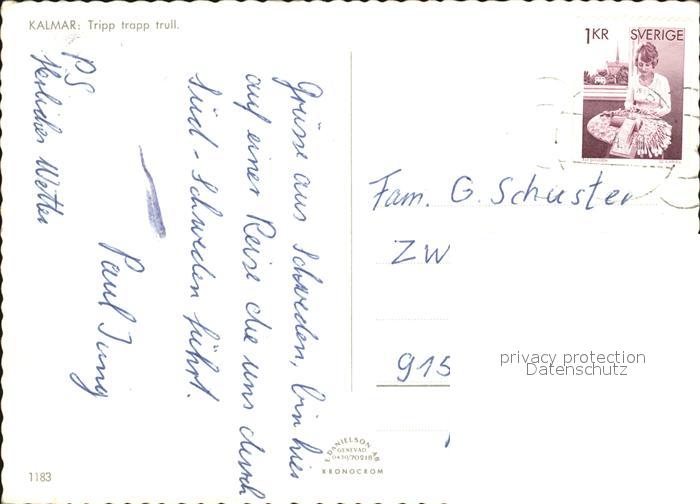 KALMAR: Tripp trapp trull.
Grüsse aus Schweden, bin hier
auf einer Reise die uns durch
Süd-Schweden führt.
Paul Jung
PS
Herliches Wetter
1KR SVERIGE
Fam. G. Schuster
ZW
915
privacy protection
Datenschutz
E. DANIELSON AB
GENEVAD
0430/70218
KRONOCROM
1183